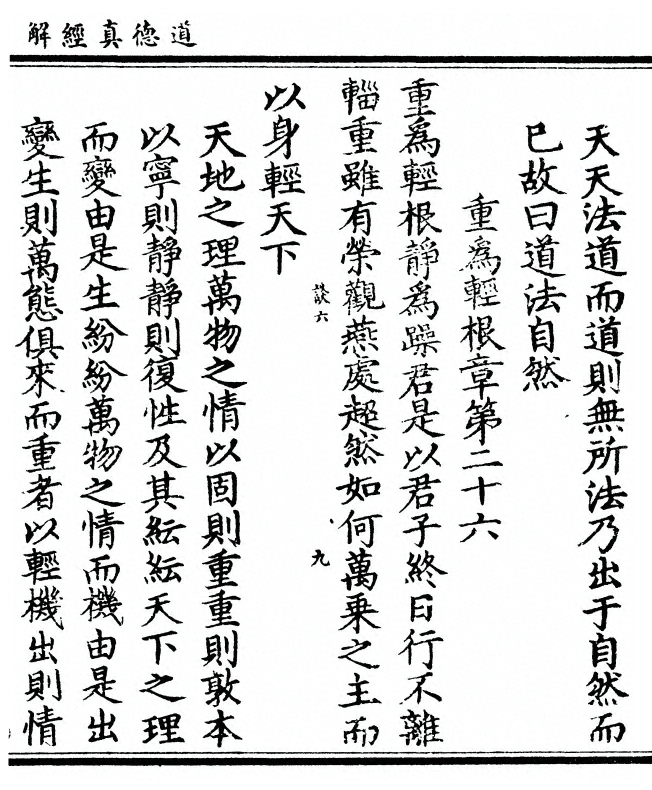 道德真經解
天天法道而道則無所法乃出于自然而
已故曰道法自然
重爲輕根章第二十六
重爲輕根靜爲躁君是以君子終日行不離
輜重雖有榮觀燕處超然如何萬乘之主而
談六
九
以身輕天下
天地之理萬物之情以固則重重則敦本
以寧則靜靜則復性及其紜紜天下之理
而變由是生紛紛萬物之情而機由是出
變生則萬態俱來而重者以輕機出則情